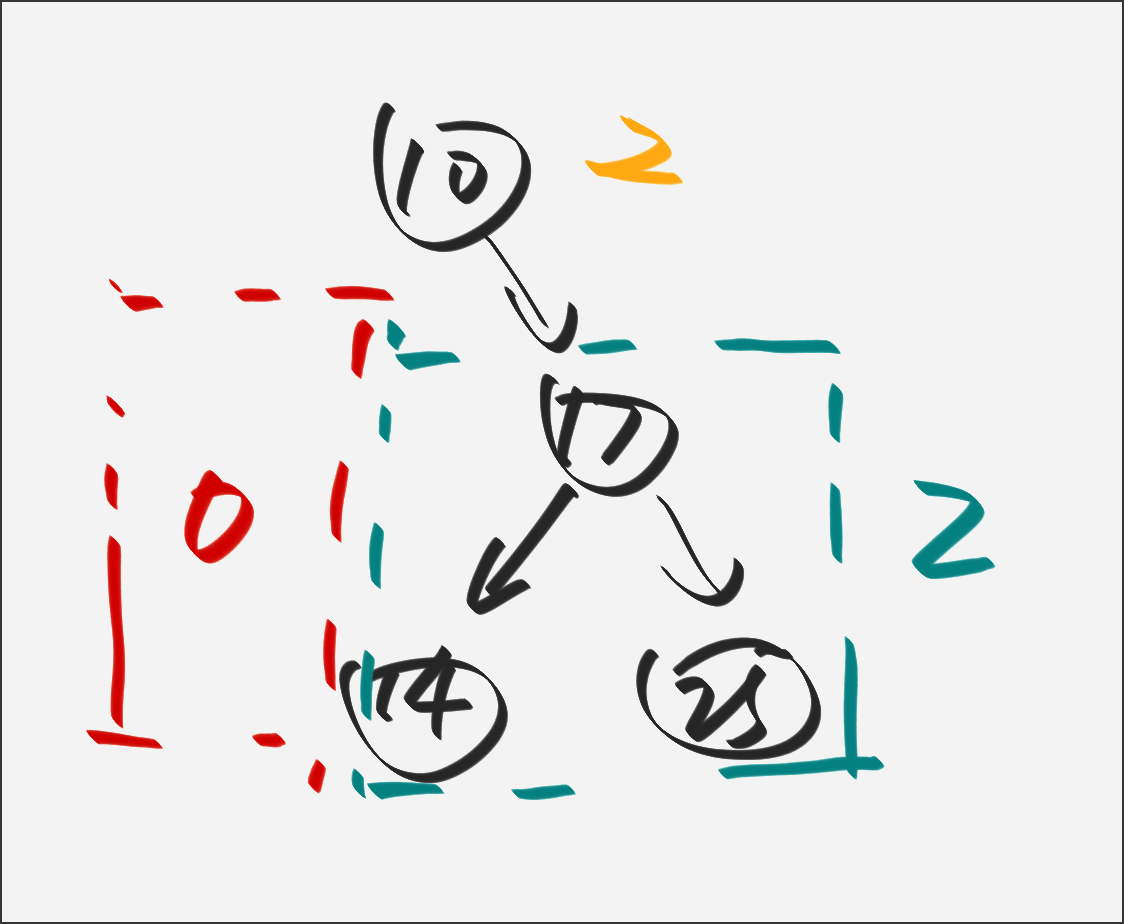 10 2
17
0 2
14 25